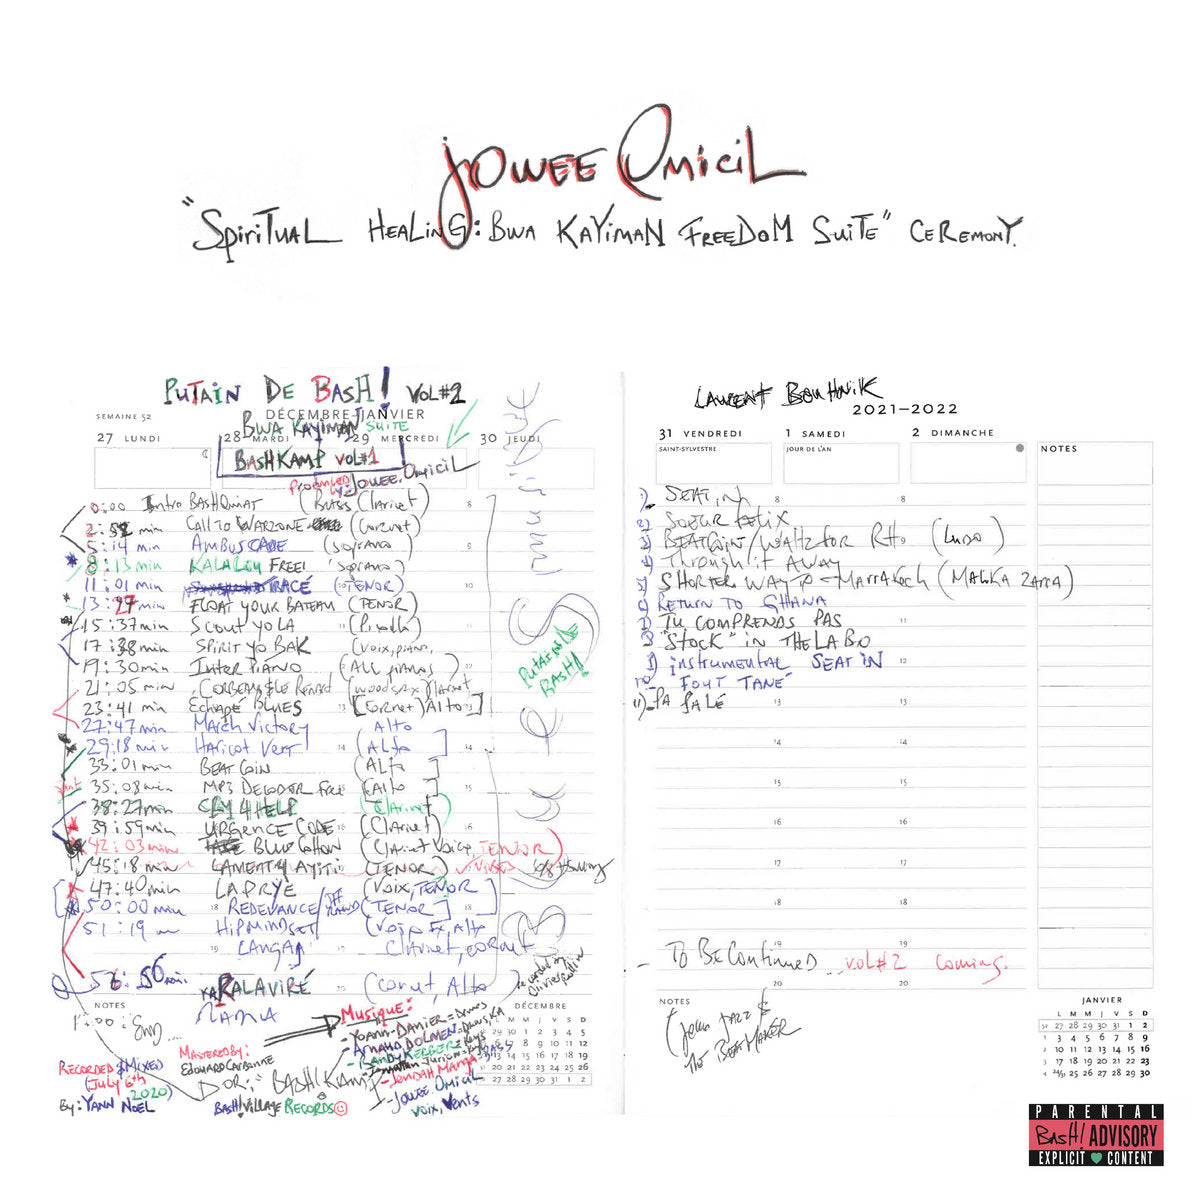 Jowee Omicil
"Spiritual Healing: Bwa Kayiman Freedom Suite" Ceremony.
Putain De Bash! Vol#2
SEMAINE 52
DÉCEMBRE-JANVIER
Bwa Kayiman Suite
27 LUNDI
28 MARDI
29 MERCREDI
30 JEUDI
BashKamp Vol#1
Produced by: Jowee Omicil
0:00 Intro BashOmiat (Bass Clarinet)
2:52 min Call to Warzone (Cornet)
5:14 min Ambuscade (Soprano)
8:13 min Kalalou Free! (Soprano)
11:01 min Tracé (Tenor)
13:27 min Float Your Bateau (Tenor)
15:37 min Scout Yo La (Piccolo)
17:38 min Spirit Yo Bak (Voix, piano,
19:30 min Inter Piano (All pianos)
21:05 min Corbeau & Le Renard
23:41 min Echapé Blues [Cornet) Alto]
27:47 min March Victory Alto
29:18 min Haricot Vert (Alto)
33:01 min Beat Coin (Alto)
35:08 min MP3 Decoder Free (Alto)
38:27 min Cry 4 Help (Clarinet)
39:59 min Urgence Code (Clarinet)
42:03 min Blue Cohon (Clarinet Voice, Tenor)
45:18 min Lament 4 Ayiti (Tenor)
47:40 min Lapryè (Voix, Tenor)
50:00 min Redevance (Tenor)
51:19 HipMindset (Voix Fx, Alto
Langaj Clarinet, cornet
56:56 min. Ralaviré (Cornet, Alto)
Mama
Putain De Bash!
NOTES
Musique:
Yoann Danier = Drums
Arnaud Dolmen = Drums, KA
Randy Kerber = Keys
Jonathan Jurion =
Jendah Manga = Bass
Jowee Omicil
Voix, Vents
Recorded & Mixed
(July 6th 2020)
By: Yann Noel
Mastered By:
Edouard Carbonne
Dor: Bash! Kamp
Bash! Village Records ©
DÉCEMBRE
L M M J V S D
29 30 1 2 3 4 5
6 7 8 9 10 11 12
13 14 15 16 17 18 19
20 21 22 23 24 25 26
27 28 29 30 31 1 2
Laurent Bouhnik
2021–2022
31 VENDREDI
1 SAMEDI
2 DIMANCHE
NOTES
SAINT-SYLVESTRE
JOUR DE L'AN
1) Seat in
2) Soeur Felix
3) Beatcoin/Waltz for RH (Ludo)
4) Through it Away
5) Shorter Way to Marrakech (Malika Zarra)
6) Return to Ghana
7) Tu Comprends Pas
8) "Stock" in The Labo
9) instrumental Seat in
10) Fout Tané
11) Pa Palé
- To Be Continued Vol#2 coming.
NOTES
(John Jazz &
The BeatMaker
JANVIER
L M M J V S D
52 27 28 29 30 31 1 2
1 3 4 5 6 7 8 9
2 10 11 12 13 14 15 16
3 17 18 19 20 21 22 23
4 24/31 25 26 27 28 29 30
PARENTAL
Bash! ADVISORY
EXPLICIT CONTENT